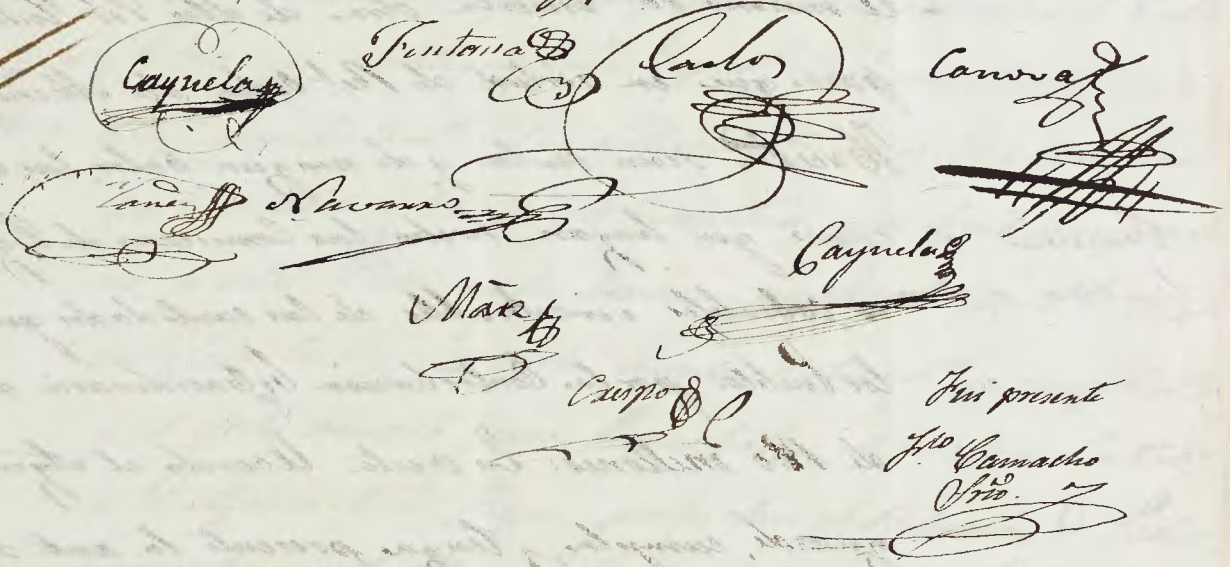 Cayuela Fontana Carlos Canovas
Navarro
Cayuela
Mãrz
Crespo
Fui presente
Camacho
Srio.